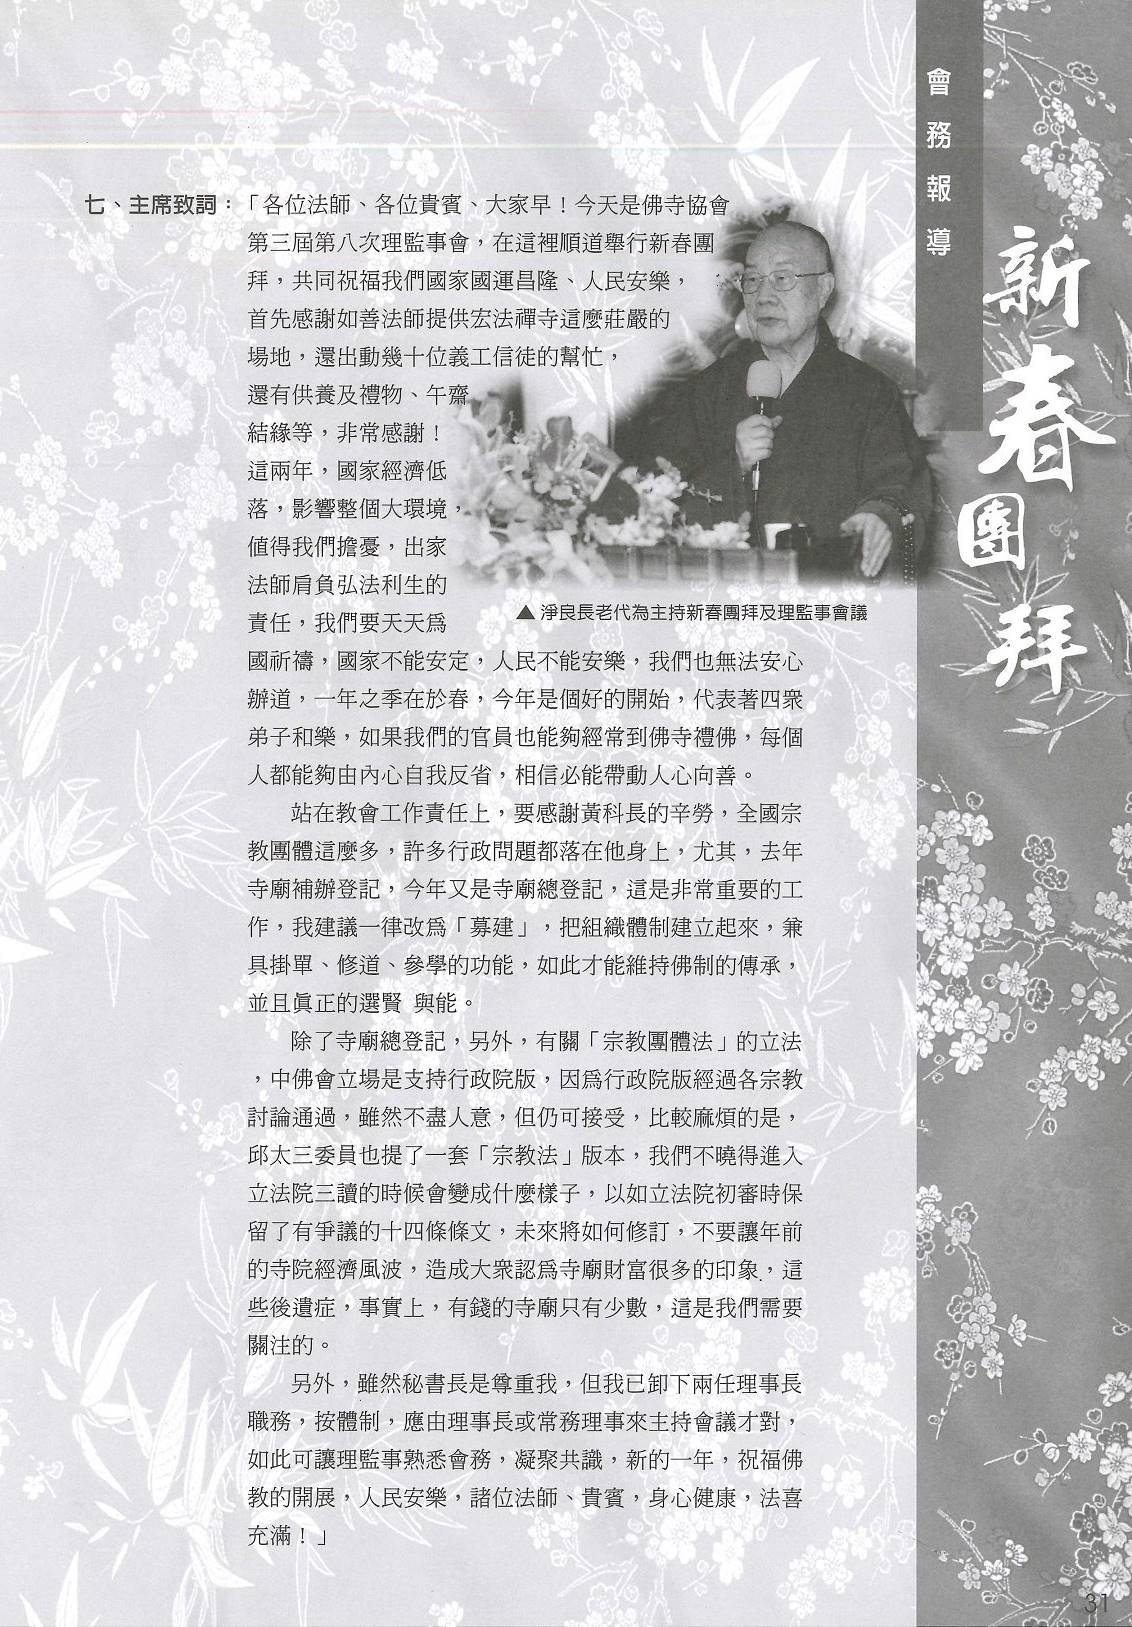 會務報導
新春團拜
七、主席致詞：「各位法師、各位貴賓、大家早！今天是佛寺協會
第三屆第八次理監事會，在這裡順道舉行新春團
拜，共同祝福我們國家國運昌隆、人民安樂，
首先感謝如善法師提供宏法禪寺這麼莊嚴的
場地，還出動幾十位義工信徒的幫忙，
還有供養及禮物、午齋
結緣等，非常感謝！
這兩年，國家經濟低
落，影響整個大環境，
值得我們擔憂，出家
法師肩負弘法利生的
責任，我們要天天為
國祈禱，國家不能安定，人民不能安樂，我們也無法安心
辦道，一年之季在於春，今年是個好的開始，代表著四眾
弟子和樂，如果我們的官員也能夠經常到佛寺禮佛，每個
人都能夠由內心自我反省，相信必能帶動人心向善。
站在教會工作責任上，要感謝黃科長的辛勞，全國宗
教團體這麼多，許多行政問題都落在他身上，尤其，去年
寺廟補辦登記，今年又是寺廟總登記，這是非常重要的工
作，我建議一律改為「募建」，把組織體制建立起來，兼
具掛單、修道、參學的功能，如此才能維持佛制的傳承，
並且真正的選賢 與能。
除了寺廟總登記，另外，有關「宗教團體法」的立法
，中佛會立場是支持行政院版，因為行政院版經過各宗教
討論通過，雖然不盡人意，但仍可接受，比較麻煩的是，
邱太三委員也提了一套「宗教法」版本，我們不曉得進入
立法院三讀的時候會變成什麼樣子，以如立法院初審時保
留了有爭議的十四條條文，未來將如何修訂，不要讓年前
的寺院經濟風波，造成大眾認為寺廟財富很多的印象，這
些後遺症，事實上，有錢的寺廟只有少數，這是我們需要
關注的。
另外，雖然秘書長是尊重我，但我已卸下兩任理事長
職務，按體制，應由理事長或常務理事來主持會議才對，
如此可讓理監事熟悉會務，凝聚共識，新的一年，祝福佛
教的開展，人民安樂，諸位法師、貴賓，身心健康，法喜
充滿！」
▲ 淨良長老代為主持新春團拜及理監事會議
31